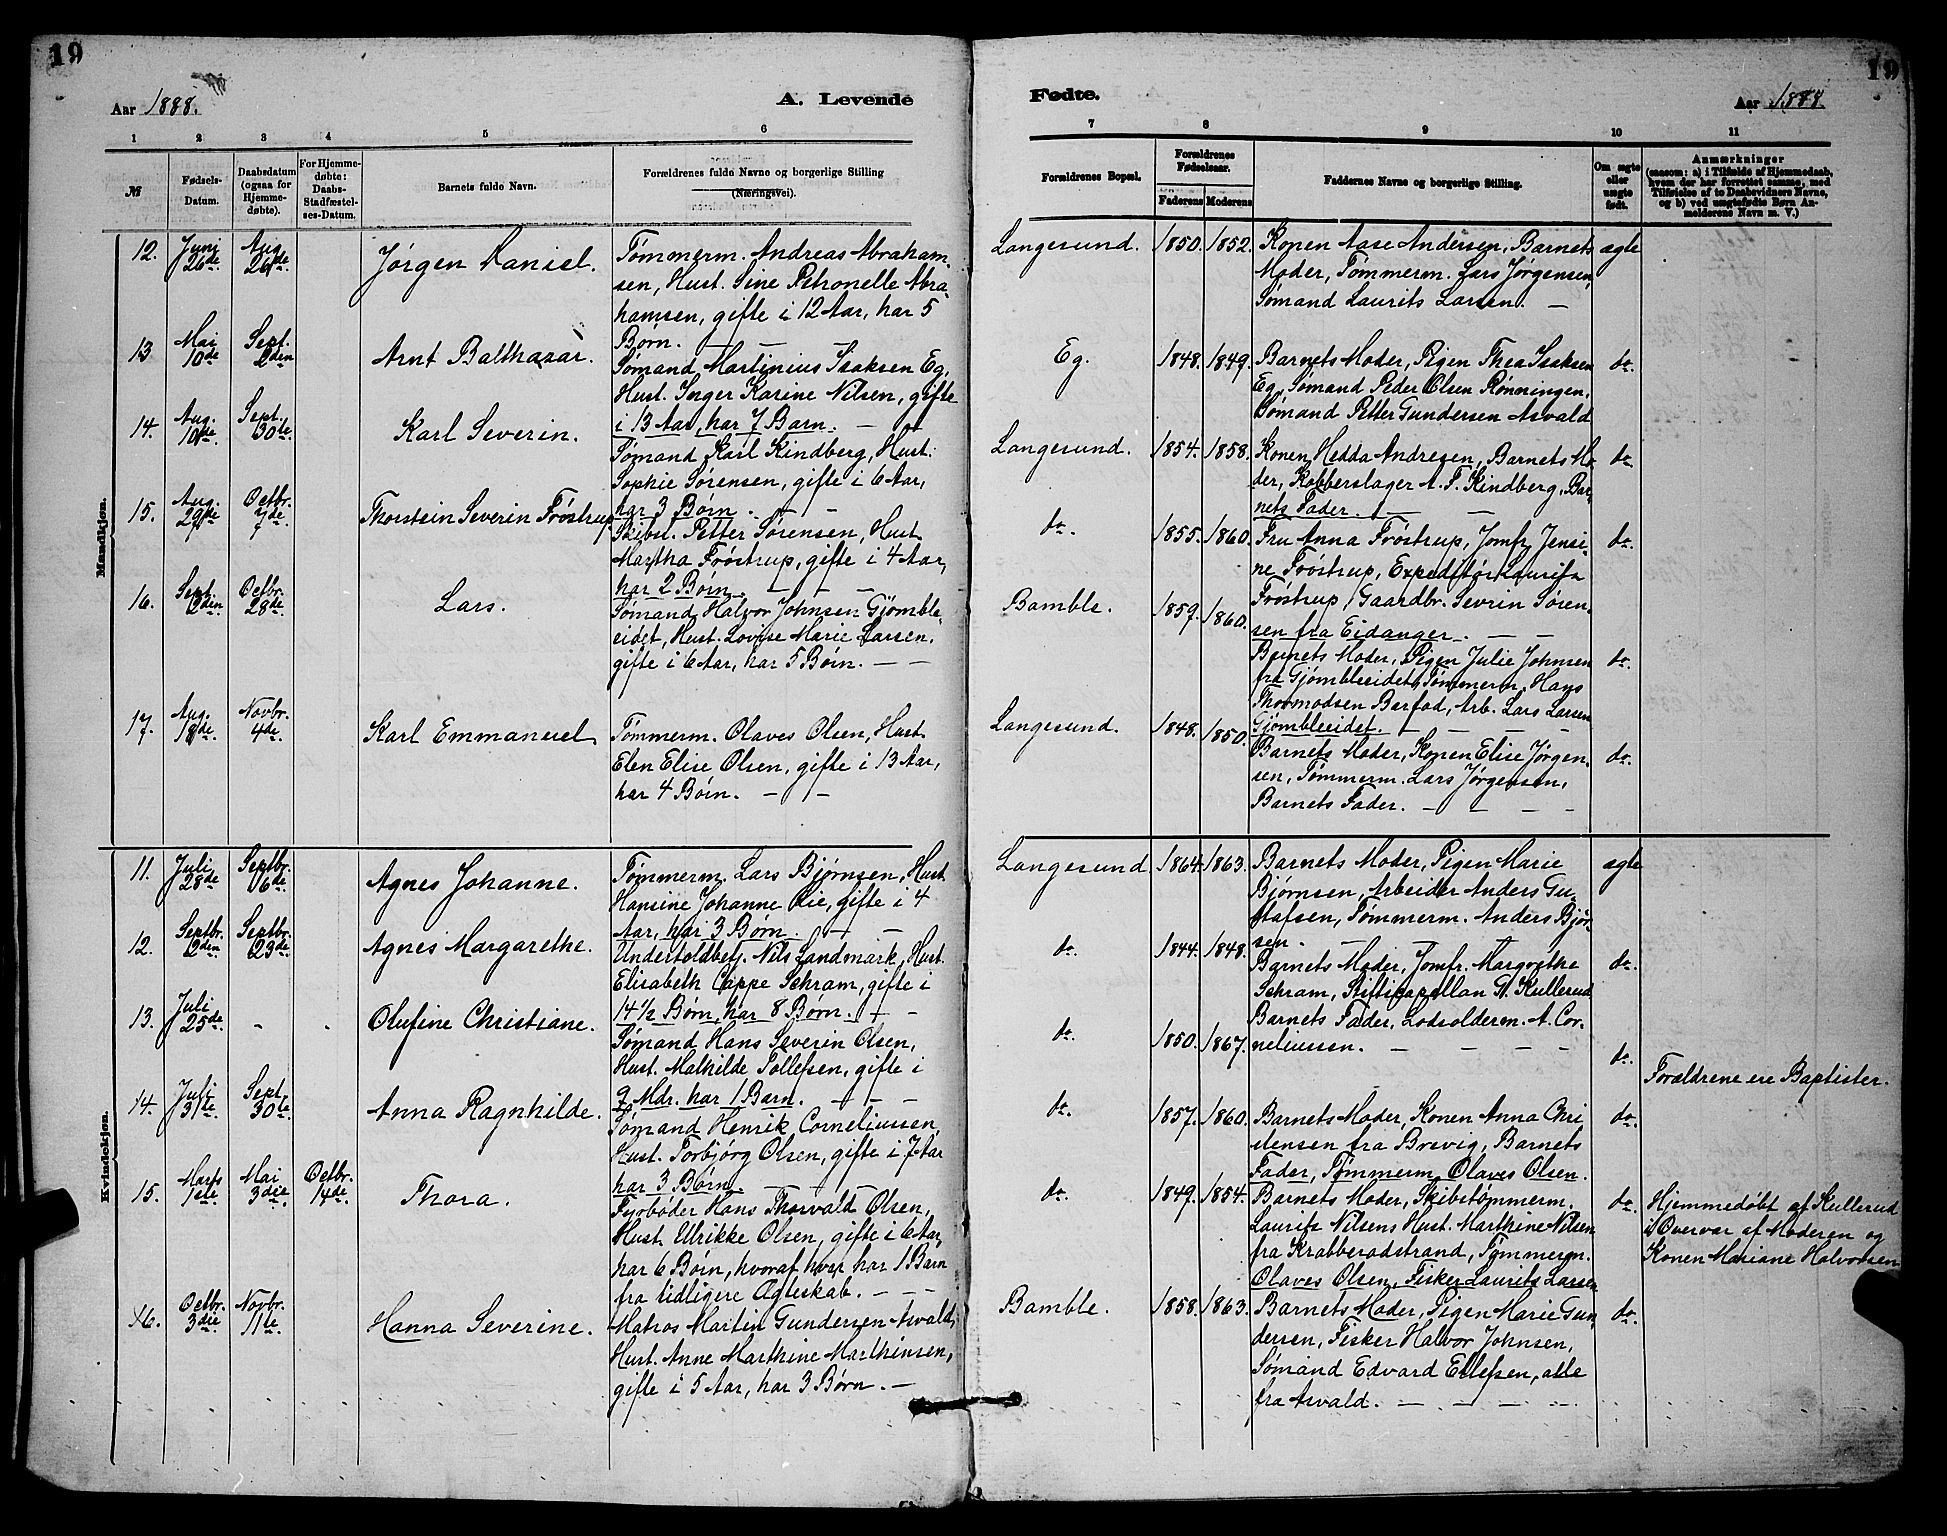 19
Aar 1888.
A. Levende
1 2 3 4 5 6
№
Fødsels-Datum.
Daabsdatum (ogsaa for Hjemmedøbte).
For Hjemmedøbte: Daabs-Stadfæstelses-Datum.
Barnets fulde Navn.
Forældrenes fulde Navne og borgerlige Stilling
(Næringsvei).
Mandkjøn.
12. Juni 26de Aug. 26de Jørgen Daniel.
Tømmerm. Andreas Abraham-
sen, Hust. Sine Petronelle Abra-
hamsen, gifte i 12 Aar, har 5
Børn. — —
13 Mai 10de Sept. 2den Arnt Balthazar.
Sømand Martinius Isaksen Eg,
Hust. Inger Karine Nilsen, gifte
i 13 Aar, har 7 Barn. — —
14. Aug. 10de Sept. 30te Karl Severin.
Sømand Karl Kindberg, Hust.
Sophie Sørensen, gifte i 6 Aar,
har 3 Børn. — —
15. Aug. 29de Octbr. 7de Thorstein Severin Frøstrup.
Skibst. Petter Sørensen, Hust.
Martha Frøstrup, gifte i 4 Aar,
har 2 Børn. — — —
16. Sept. 2den Octbr. 28de Lars.
Sømand Halvor Johnsen Gjømble-
eidet, Hust. Lovise Marie Larsen,
gifte i 6 Aar, har 5 Børn. — —
17. Aug. 18de Novbr. 4de Karl Emmanuel.
Tømmerm. Olaves Olsen, Hust.
Elen Elise Olsen, gifte i 13 Aar,
har 4 Børn. — —
Kvindekjøn.
11. Juli 28de Septbr. 16de Agnes Johanne.
Tømmerm. Lars Bjørnsen, Hust.
Hansine Johanne Lie, gifte i 4
Aar, har 3 Børn. — —
12. Septbr. 2den Septbr. 23de Agnes Margarethe.
Undertoldbetj. Nils Landmark, Hust.
Elisabeth Cappe Schram, gifte i
14 1/2 Børn, har 8 Børn. — —
13. Juli 25de - - Olufine Christiane.
Sømand Hans Severin Olsen,
Hust. Mathilde Tollefsen, gifte i
9 Mdr. har 1 Barn. — — —
14. Juli 31te Sept. 30te Anna Ragnhilde.
Sømand Henrik Corneliussen,
Hust. Torbjørg Olsen, gifte i 7 Aar
har 3 Børn. — — —
15. Marts 1ste Mai 3die Octbr. 14de Thora.
Fyrbøder Hans Thorvald Olsen,
Hust. Ulrikke Olsen, gifte i 6 Aar,
har 6 Børn, hvoraf hver har 1 Barn
fra tidligere Ægteskab. — — —
16. Octbr. 3die Novbr. 11te Hanna Severine.
Matros Martin Gundersen Asvald,
Hust. Anne Marthine Marthinsen,
gifte i 5 Aar, har 3 Børn. —
19
Fødte.
Aar 1888.
7 8 9 10 11
Forældrenes Bopæl.
Forældrenes Fødselsaar.
Faderens Moderens
Faddernes Navne og borgerlige Stilling.
Om ægte eller uægte født.
Anmærkninger
(saasom: a) i Tilfælde af Hjemmedaab,
hvem der har forrettet samme, med
Tilføielse af to Daabsvidners Navne,
og b) ved uægtefødte Børn An-
melderens Navn m. V.)
Langesund. 1850. 1852. Konen Aase Andersen, Barnets ægte
Moder, Tømmerm. Lars Jørgensen,
Sømand Laurits Larsen. —
Eg. 1848. 1849. Barnets Moder, Pigen Thea Isaksen do.
Eg, Sømand Peder Olsen Rønningen,
Sømand Petter Gundersen Asvald
Langesund. 1854. 1858. Konen Hedda Andresen, Barnets Mo- do.
der, Kobberslager A. F. Kindberg, Bar-
nets Fader. — — —
do. 1855. 1860. Fru Anna Frøstrup, Jomfr. Jensi- do.
ne Frøstrup, Expeditør Laurits
Frøstrup, Gaardbr. Sevrin Søren-
sen fra Eidanger. — —
Bamble. 1859. 1860. Barnets Moder, Pigen Julie Johnsen do.
fra Gjømbleeidet, Tømmerm. Hans
Thormodsen Barfod, Arb. Lars Larsen
Gjømbleeidet. — — — —
Langesund. 1848. 1850. Barnets Moder, Konen Elise Jørgen- do.
sen, Tømmerm. Lars Jørgensen,
Barnets Fader. — — — —
Langesund 1864. 1863. Barnets Moder, Pigen Marie ægte
Bjørnsen, Arbeider Anders Gu-
stafsen, Tømmerm. Anders Bjør-
sen. — — — —
do. 1844. 1848. Barnets Moder, Jomfr. Margrethe do.
Schram, Stiftscapellan G. Kullerud
Barnets Fader, Lodsolderm. A. Cor-
neliussen. — — — —
do. 1850. 1867. do. Forældrene ere Baptister.
do. 1857. 1860. Barnets Moder, Konen Anna Chri- do.
stensen fra Brevig, Barnets
Fader, Tømmerm. Olaves Olsen.
do. 1849. 1854. Barnets Moder, Skibstømmerm. do.
Laurits Nilsens Hust. Marthine Nilsen
fra Krabberødstrand, Tømmerm.
Olaves Olsen, Fisker Laurits Larsen
Hjemmedøbt af Kullerud
i Overvær af Moderen og
Konen Mariane Halvorsen
Bamble. 1858. 1863. Barnets Moder, Pigen Marie Gun- do.
dersen, Fisker Halvor Johnsen,
Sømand Edvard Ellefsen, alle
fra Asvald. — — — —